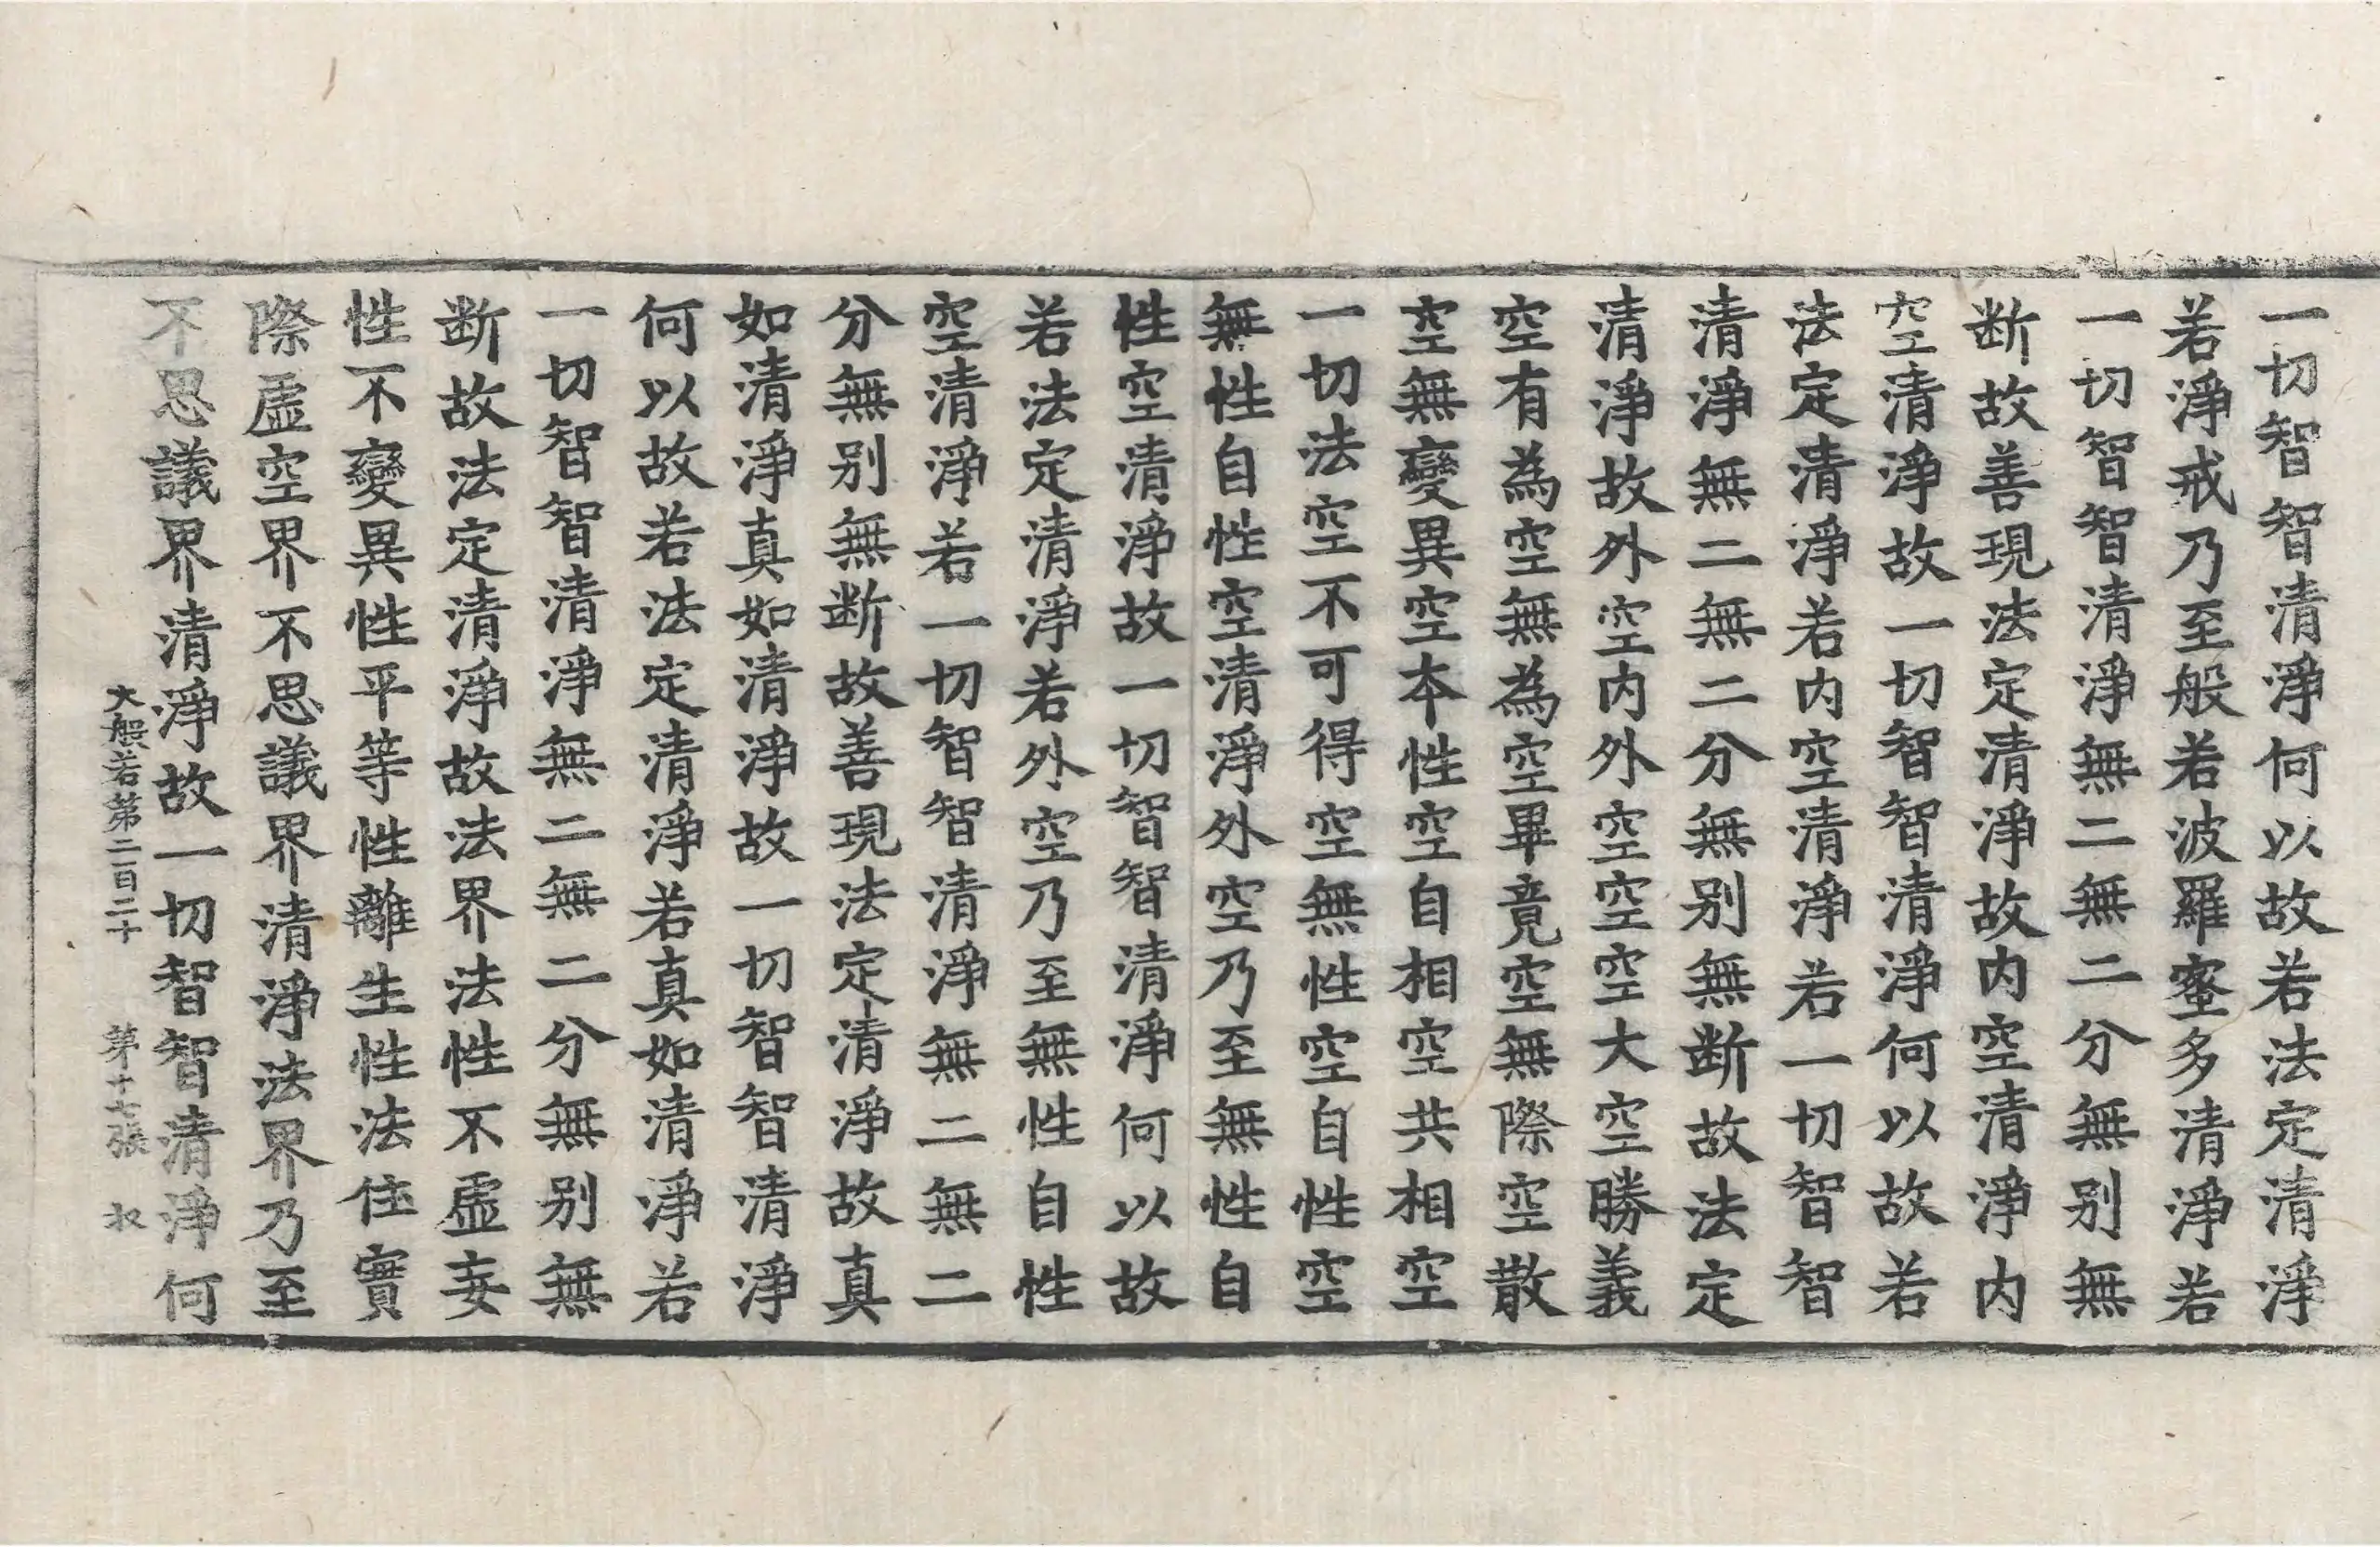 一切智智清淨何以故若法定清淨
若淨戒乃至般若波羅蜜多清淨若
一切智智清淨無二無二分無別無
断故善現法定清淨故内空清淨内
空清淨故一切智智清淨何以故若
法定清淨若内空清淨若一切智智
清淨無二無二分無別無断故法定
清淨故外空内外空空空大空勝義
空有為空無為空畢竟空無際空散
空無變異空本性空自相空共相空
一切法空不可得空無性空自性空
無性自性空清淨外空乃至無性自
性空清淨故一切智智清淨何以故
若法定清淨若外空乃至無性自性
空清淨若一切智智清淨無二無二
分無別無断故善現法定清淨故真
如清淨真如清淨故一切智智清淨
何以故若法定清淨若真如清淨若
一切智智清淨無二無二分無別無
断故法定清淨故法界法性不虛妄
性不變異性平等性離生性法住實
際虛空界不思議界清淨法界乃至
不思議界清淨故一切智智清淨何
大般若第二百二十 第十七張 〻